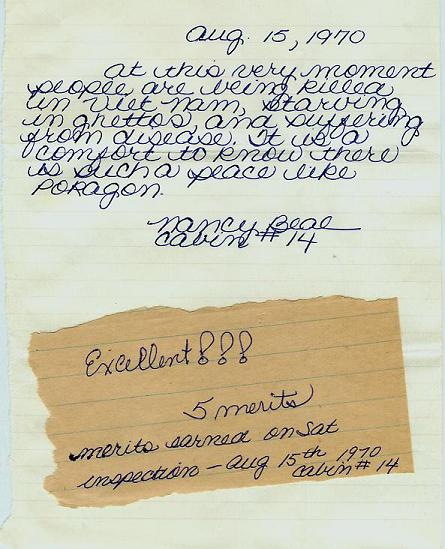 Aug. 15, 1970
At this very moment
people are being killed
in Viet nam, starving
in ghettos, and suffering
from disease. It is a
comfort to know there
is such a peace like
PORAGON.
Nancy Beal
Cabin # 14
Excellent!!!
5 merits
merits earned on Sat
inspection - Aug 15th 1970
Cabin # 14